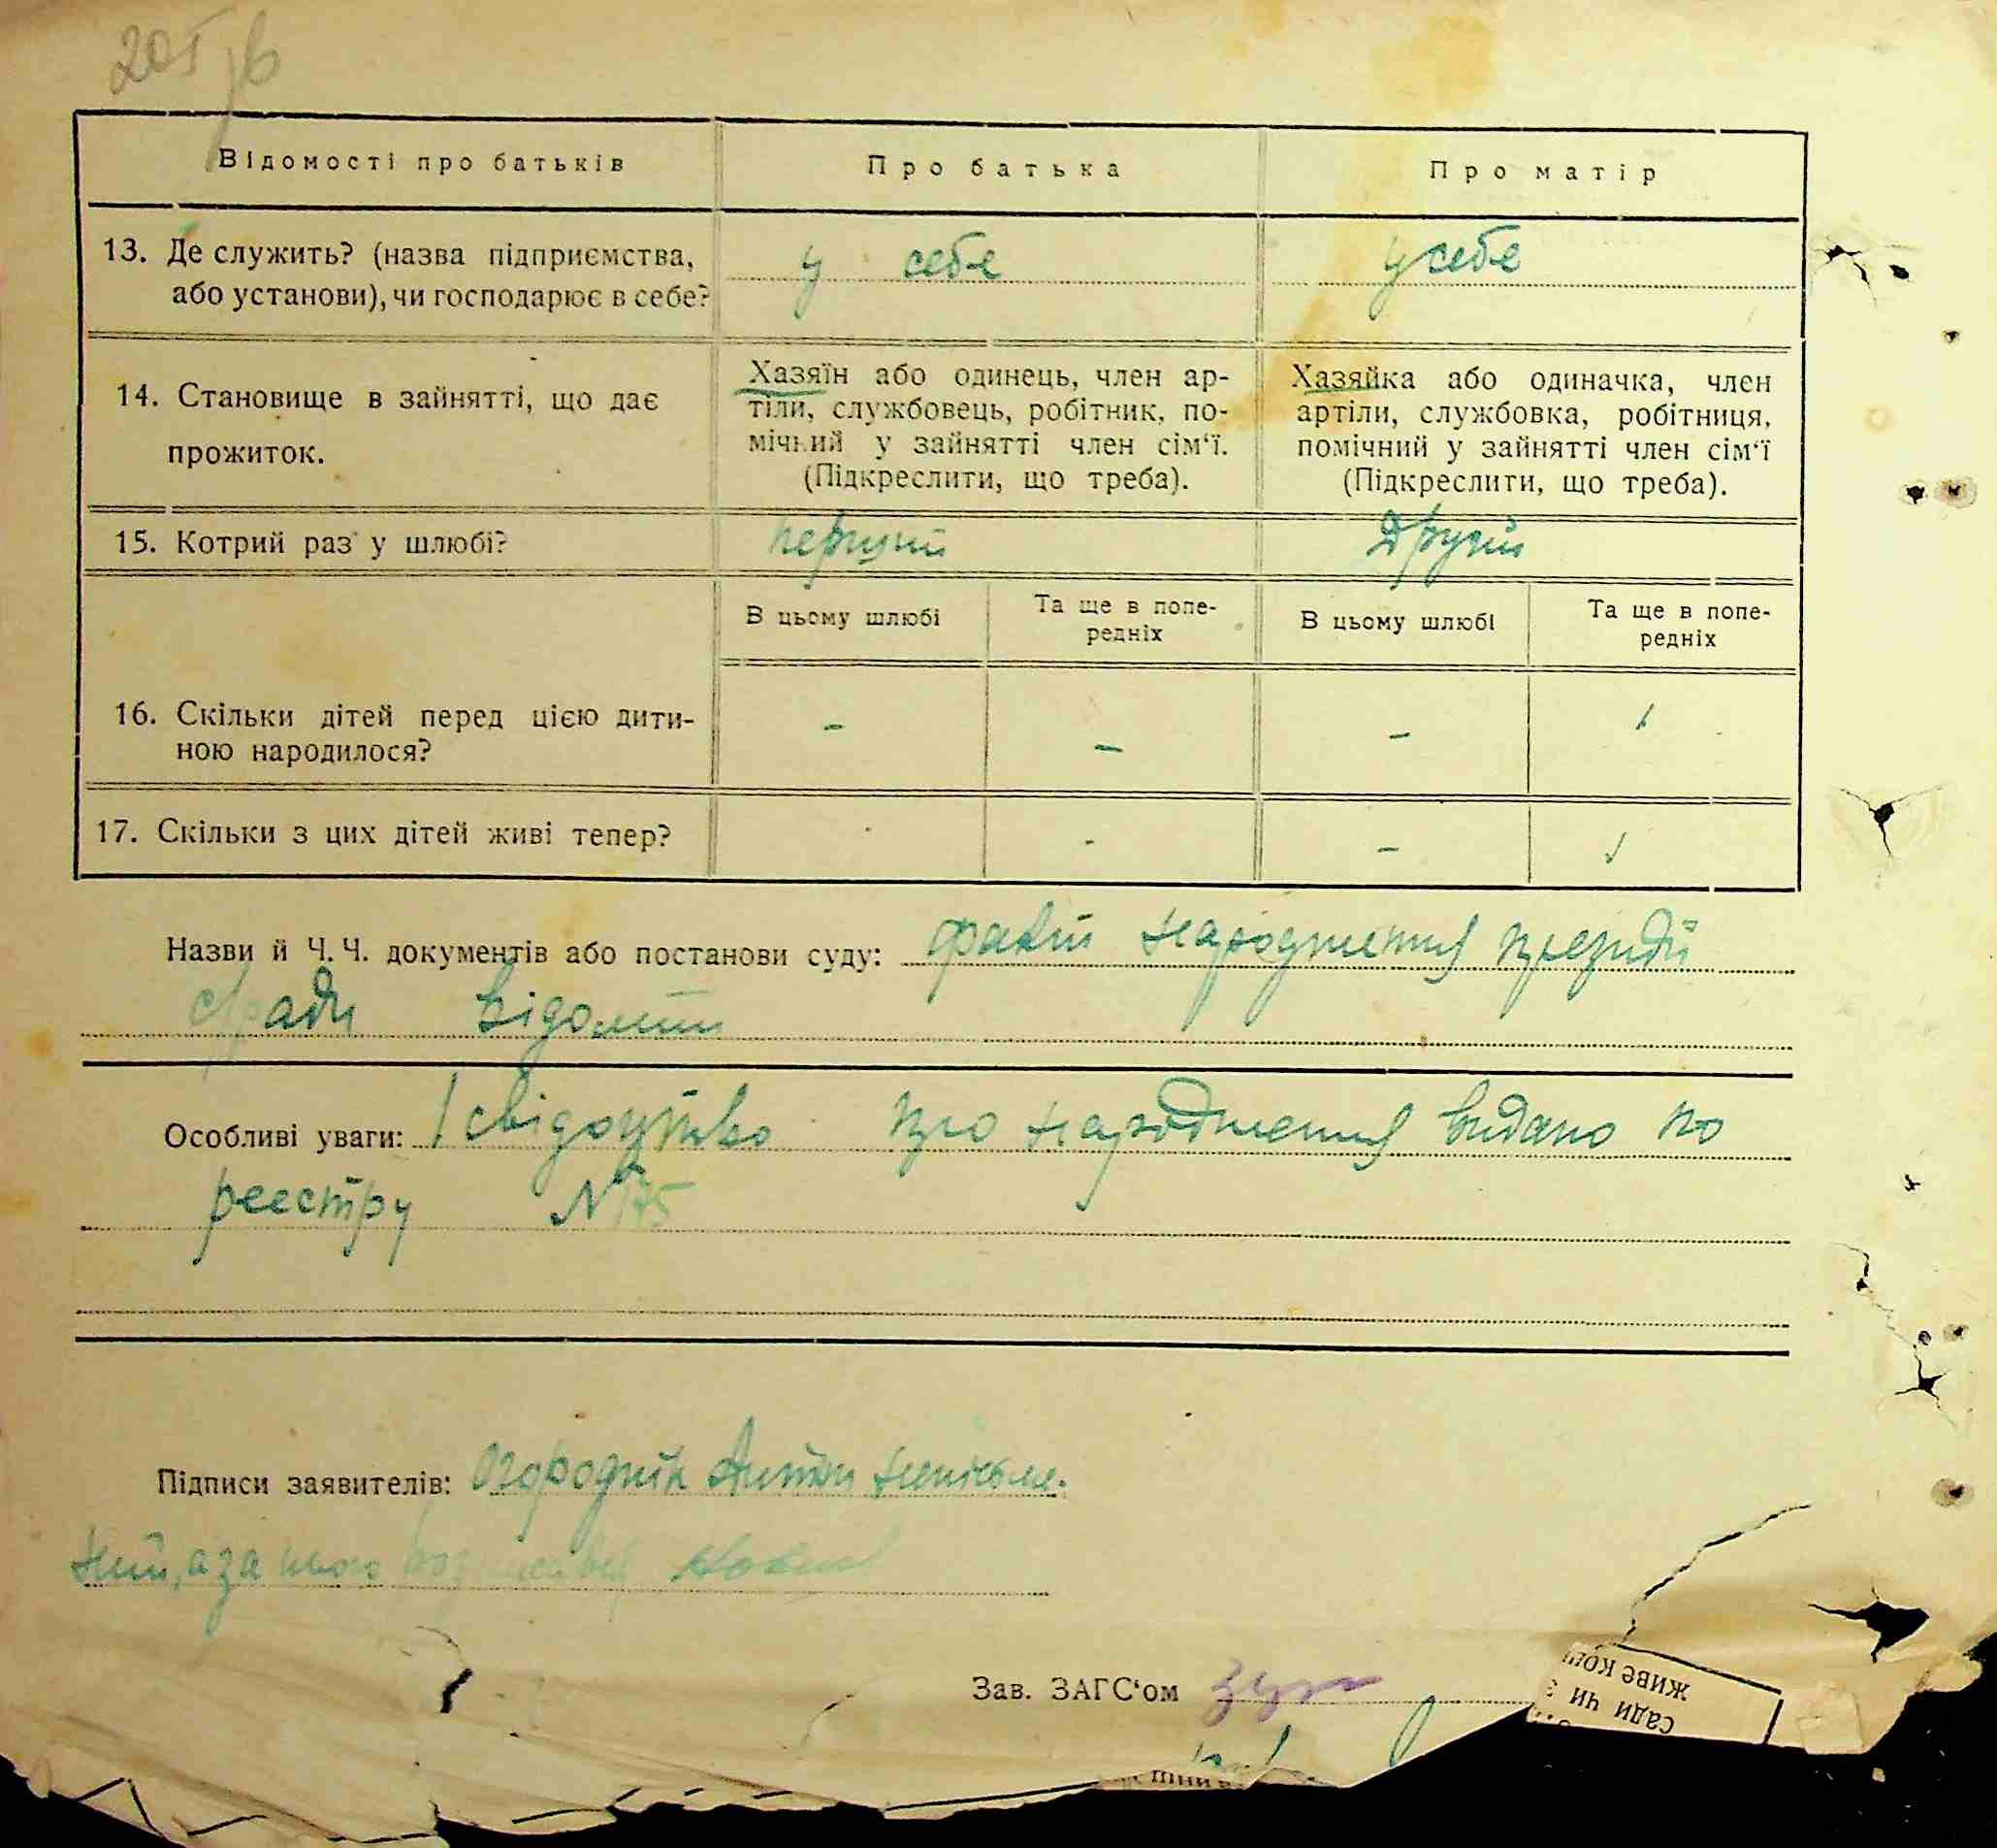 205 зв
Відомості про батьків
Про батька
Про матір
13. Де служить? (назва підприємства,
або установи), чи господарює в себе?
у себе
у себе
14. Становище в зайнятті, що дає
прожиток.
Хазяїн або одинець, член ар-
тіли, службовець, робітник, по-
мічний у зайнятті член сім‘ї.
(Підкреслити, що треба).
Хазяйка або одиначка, член
артіли, службовка, робітниця,
помічний у зайнятті член сім‘ї
(Підкреслити, що треба).
15. Котрий раз у шлюбі?
перший
другий
В цьому шлюбі
Та ще в попе-
редніх
В цьому шлюбі
Та ще в попе-
редніх
16. Скільки дітей перед цією дити-
ною народилося?
-
-
-
1
17. Скільки з цих дітей живі тепер?
-
-
-
1
Назви й Ч. Ч. документів або постанови суду: факт народження президії
с/ради відомий
Особливі уваги: свідоцтво про народження видано по
реестру № 175
Підписи заявителів: Огородній Антін неписьме-
ний, а за нього
Зав. ЗАГС‘ом
живе
сади чи